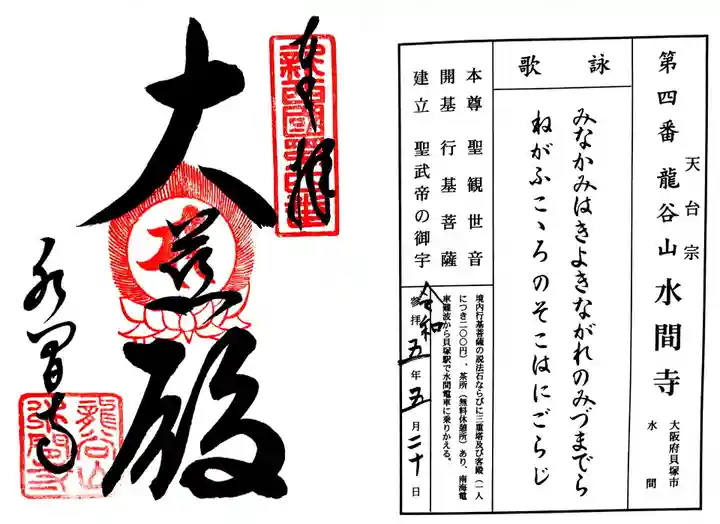 奉拝
大悲殿
水間寺
龍谷山
水間寺
第四番 天台宗 龍谷山 水間寺 大阪府貝塚市水間
詠歌
みなかみはきよきながれのみづまでら
ねがふこゝろのそこはにごらじ
本尊 聖観世音
開基 行基菩薩
建立 聖武帝の御宇
境内行基菩薩の説法石ならびに三重塔及び客殿(一人
につき二〇〇円)、茶所(無料休憩所)あり、南海電
車難波から貝塚駅で水間電車に乗りかえる。
参拝 令和五年五月二十日